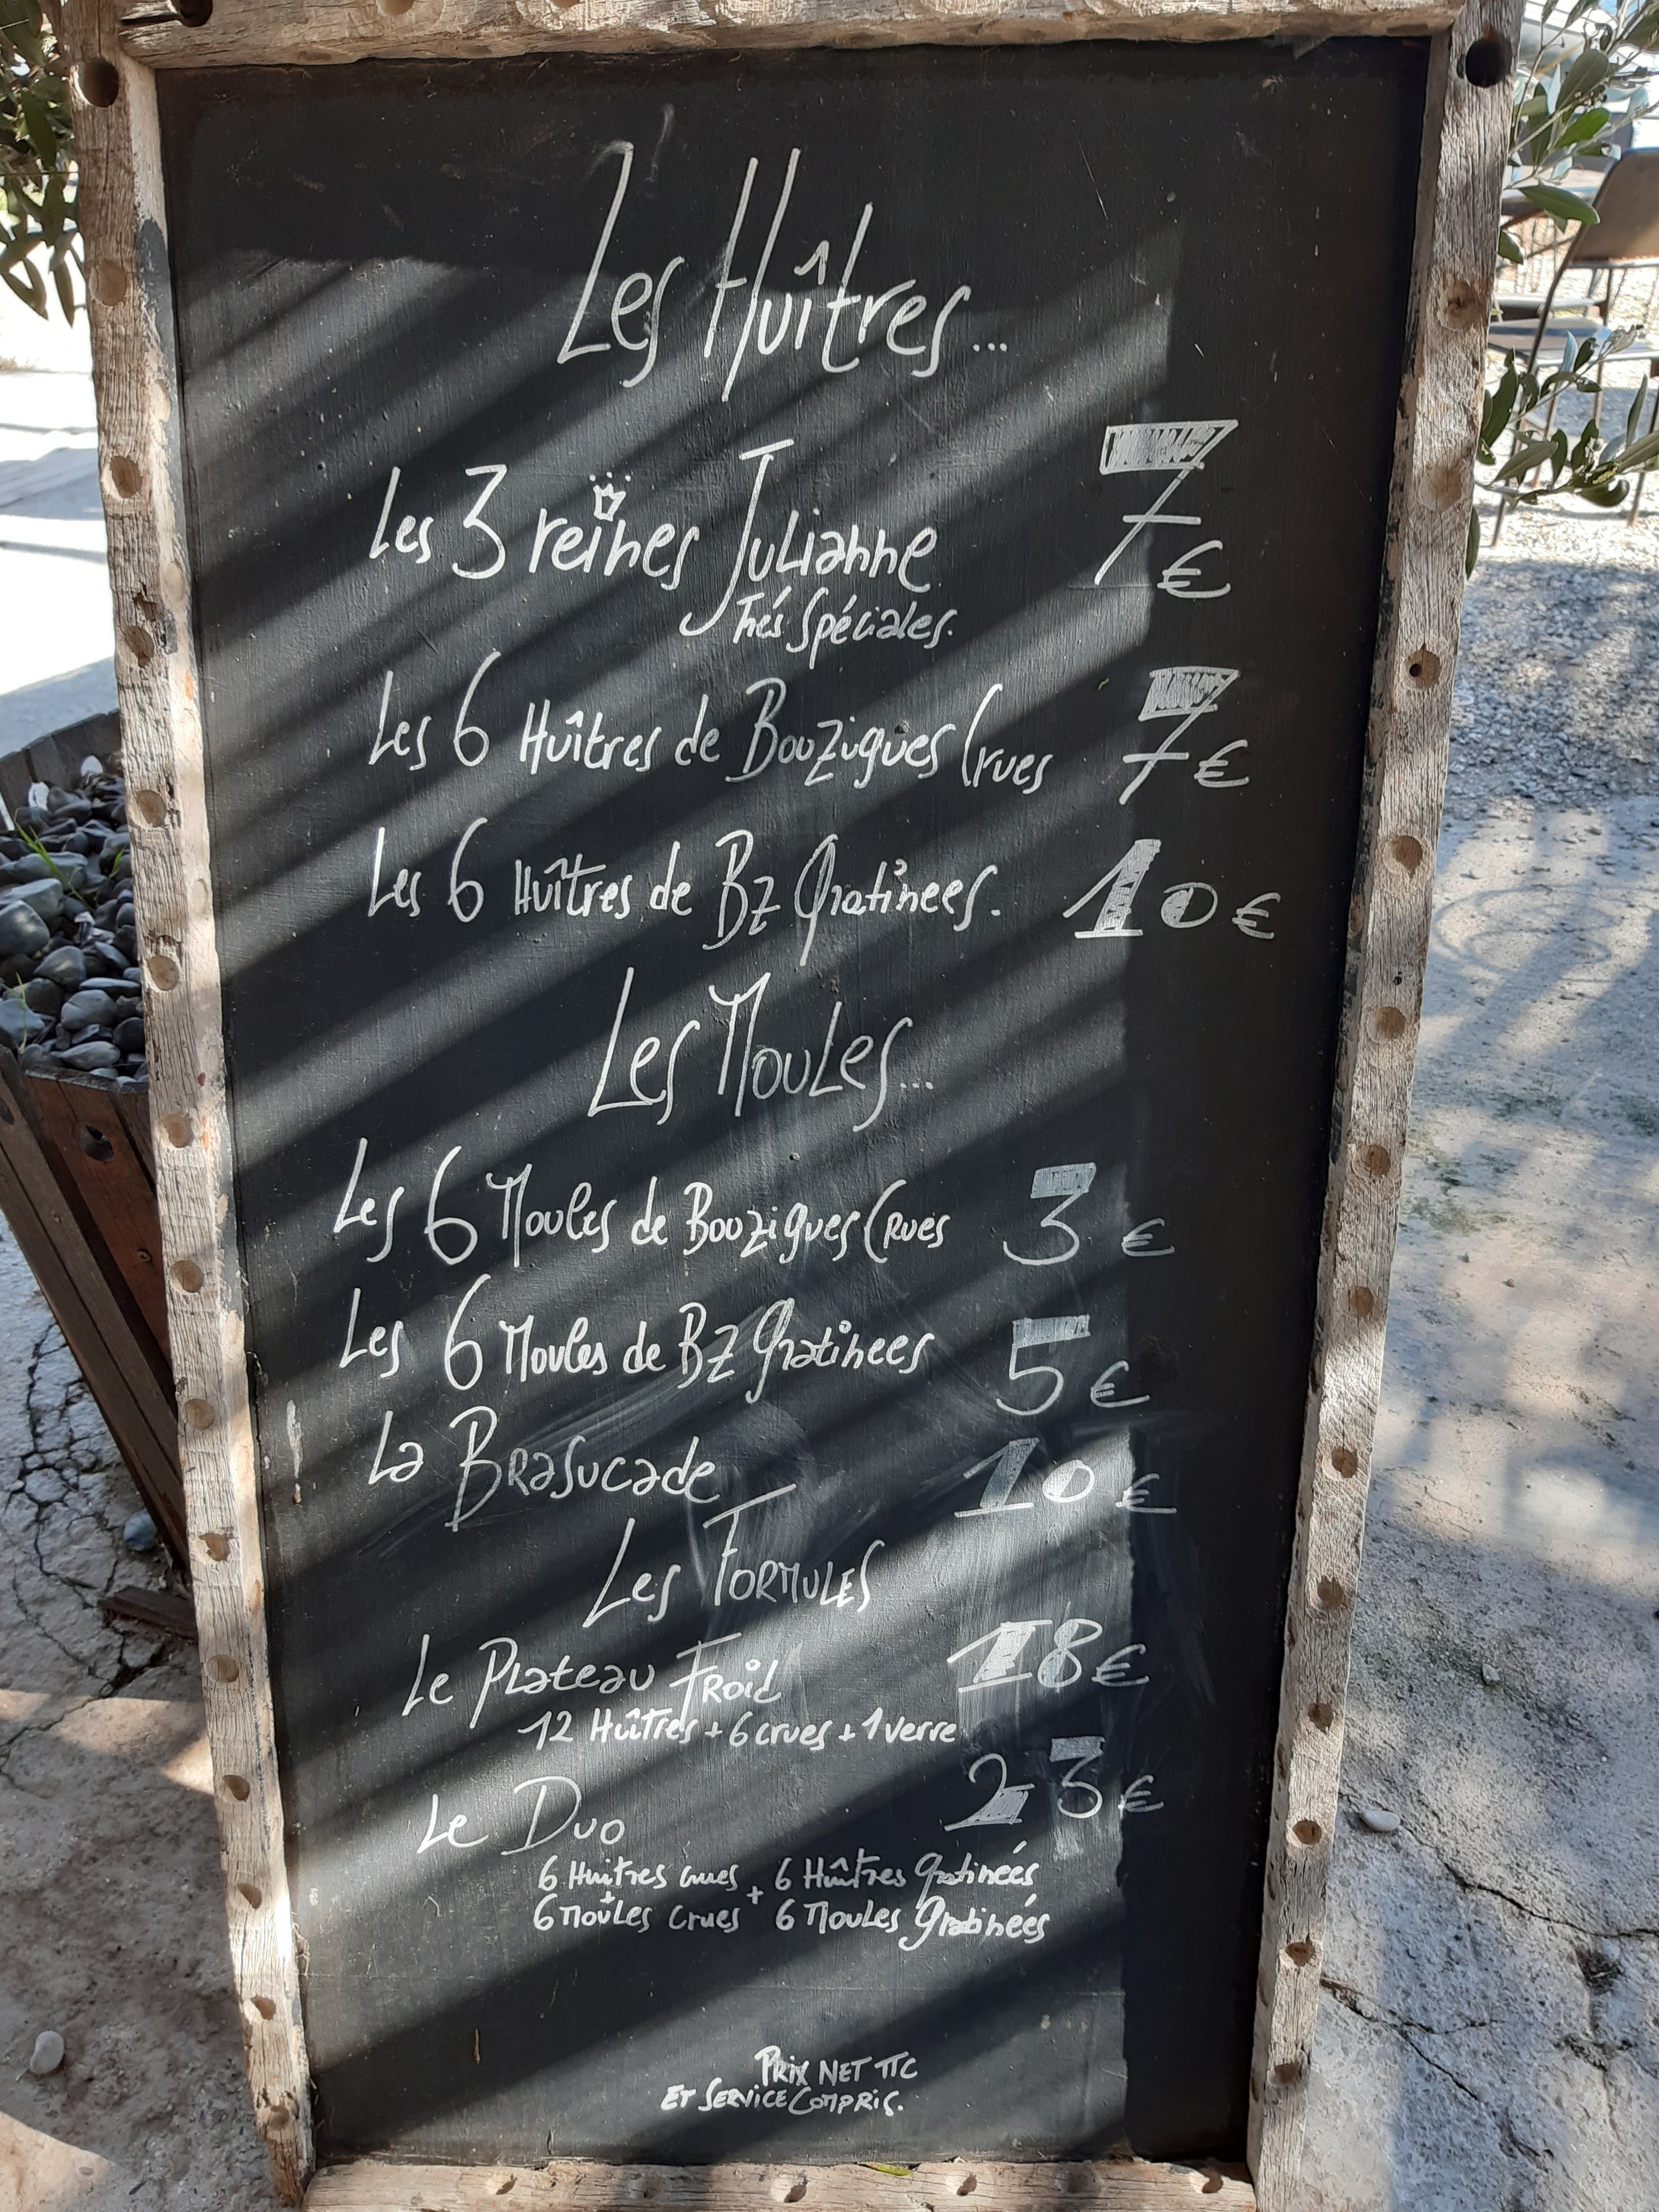 Les Huîtres...
Les 3 reines Julianne 7€
Trés Spéciales.
Les 6 Huîtres de Bouzigues Crues 7€
Les 6 Huîtres de Bz Gratinees. 10€
Les Moules...
Les 6 Moules de Bouzigues Crues 3€
Les 6 Moules de Bz Gratinees 5€
La Brasucade 10€
Les Formules
Le Plateau Froid 18€
12 Huîtres + 6 crues + 1 verre
Le Duo 23€
6 Huitres crues + 6 Huîtres Gratineés
+
6 Moules Crues 6 Moules Gratineés
Prix NET TTC
ET Service Compris.